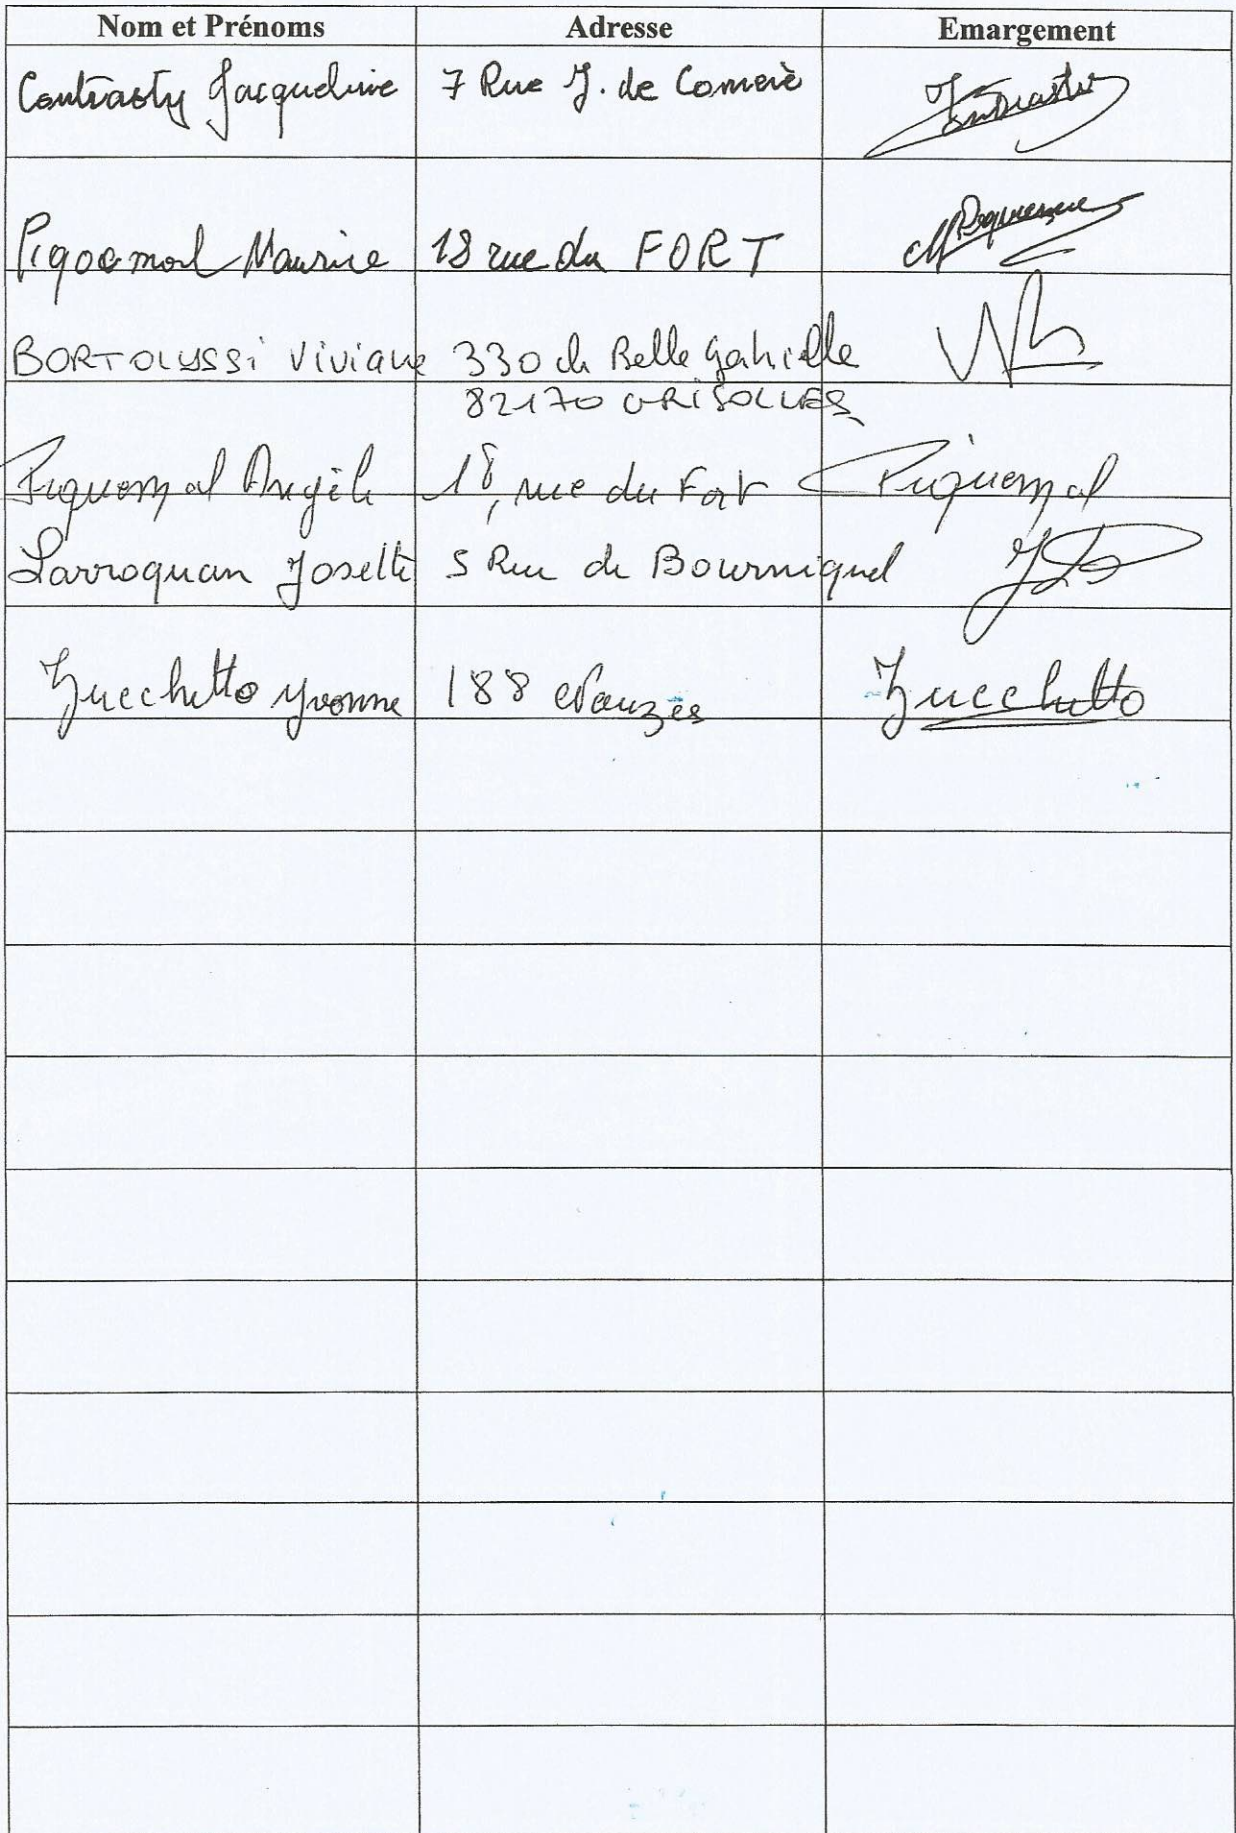 Nom et Prénoms Adresse Emargement
Contrasty Jacqueline 7 Rue J. de Comère
Piquemal Maurice 18 rue du FORT
BORTOLUSSi Viviane 330 ch Belle Gabrielle
82170 GRISOLLES
Piquemal Angèle 18, rue du Fort Piquemal
Larroquan Josette 5 Rue de Bourniquel
Zucchetto Yvonne 188 Nauzes Zucchetto